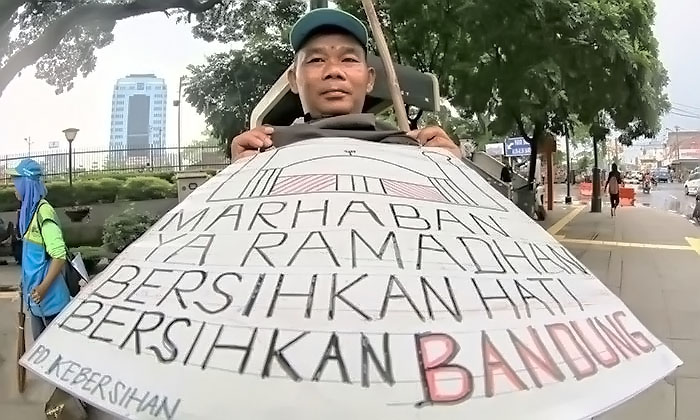 MARHABAN
YA RAMADHAN
BERSIHKAN HATI
BERSIHKAN BANDUNG
PD. KEBERSIHAN